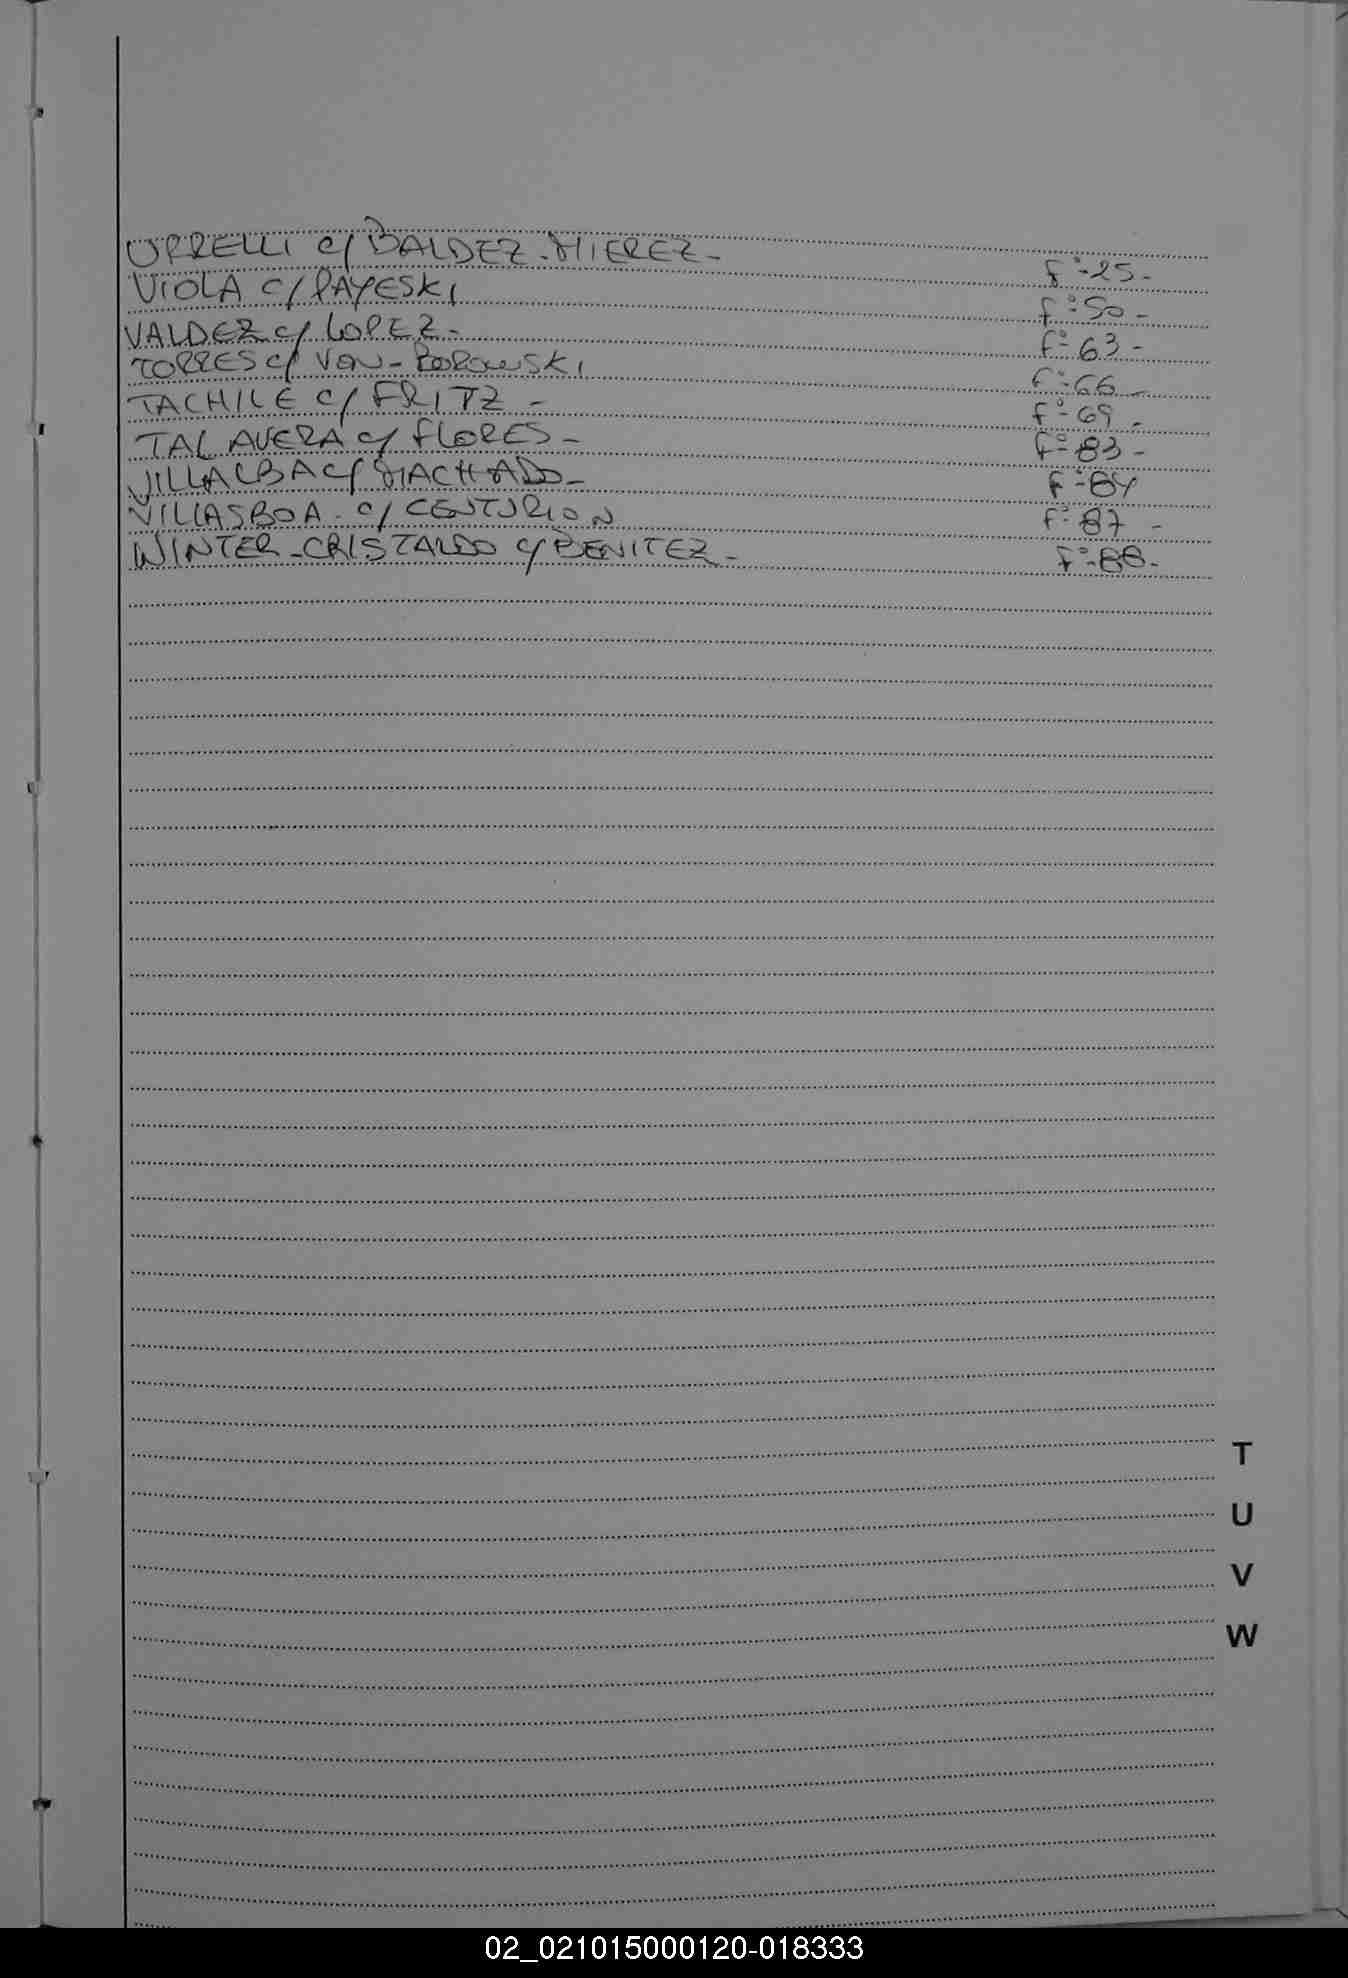 URRELLI c/ BALDEZ-MIEREZ- Fº-25-
VIOLA c/ PAYESKI Fº-50-
VALDEZ c/ LOPEZ- Fº-63-
TORRES c/ VON-BOROWSKI Fº-66-
TACHILE c/ FRITZ- Fº-69-
TALAVERA c/ FLORES- Fº-83-
VILLALBA c/ MACHADO- Fº-84
VILLASBOA- c/ CENTURION Fº-87-
WINTER-CRISTALDO c/ BENITEZ- Fº-88-
T
U
V
W
02_021015000120-018333